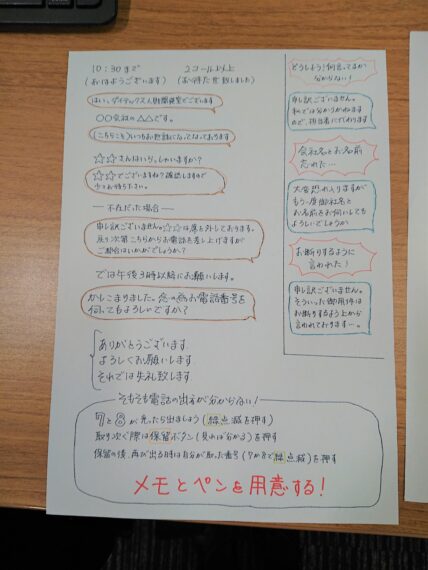 10:30まで
(おはようございます)
2コール以上
(お待たせ致しました)
はい、ダイテックス人財開発室でございます
〇〇会社の△△です。
(こちらこそ)いつもお世話になっております
☆☆さんはいらっしゃいますか?
☆☆でございますね?確認しますので
少々お待ち下さい。
―不在だった場合―
申し訳ございません。☆☆は席を外しております。
戻り次第こちらからお電話を差し上げますが
ご都合はいかがでしょうか?
では午後3時以降にお願いします。
かしこまりました。念の為お電話番号を
伺ってもよろしいですか?
ありがとうございます
よろしくお願いします
それでは失礼致します
どうしよう!何言ってるか
分からない!
申し訳ございません。
私では分かりかねます
ので、担当者に代わります
会社名とお名前
忘れた…
大変恐れ入りますが
もう一度御社名と
お名前をお伺いしても
よろしいでしょうか
お断りするように
言われた!
申し訳ございません。
そういった御用件は
お断りするよう上から
言われております…。
そもそも電話の出方が分からない!
7と8が光ったら出ましょう(緑点滅を押す)
取り次ぐ際は保留ボタン(見れば分かる)を押す
保留の後、再び出る時は自分が取った番号(7か8で緑点滅)を押す
メモとペンを用意する!